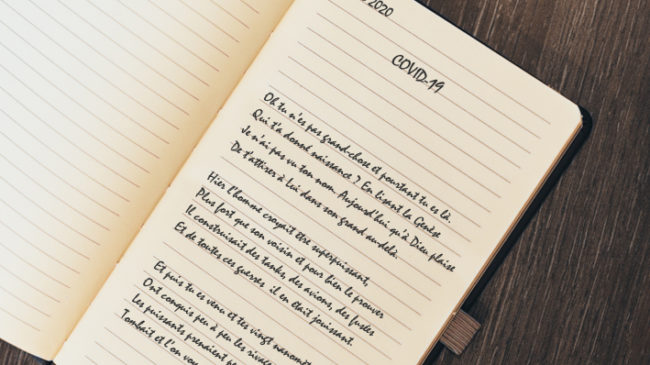 2020
COVID-19
Oh tu n'es pas grand-chose et pourtant tu es là.
Qui t'a donné naissance ? En lisant la Genèse
Je n'ai pas vu ton nom. Aujourd'hui qu'à Dieu plaise
De t'attirer à Lui dans son grand au-delà.
Hier l'homme croyait être superpuissant,
Plus fort que son voisin et pour bien le prouver
Il construisait des tanks, des avions, des fusées
Et de toutes ces guerres il en était jouissant.
Et puis tu es venu et tes vingt nanomèt
Ont conquis peu à peu les rivag
Les puissants prenaient pe
Tombait et l'on vou